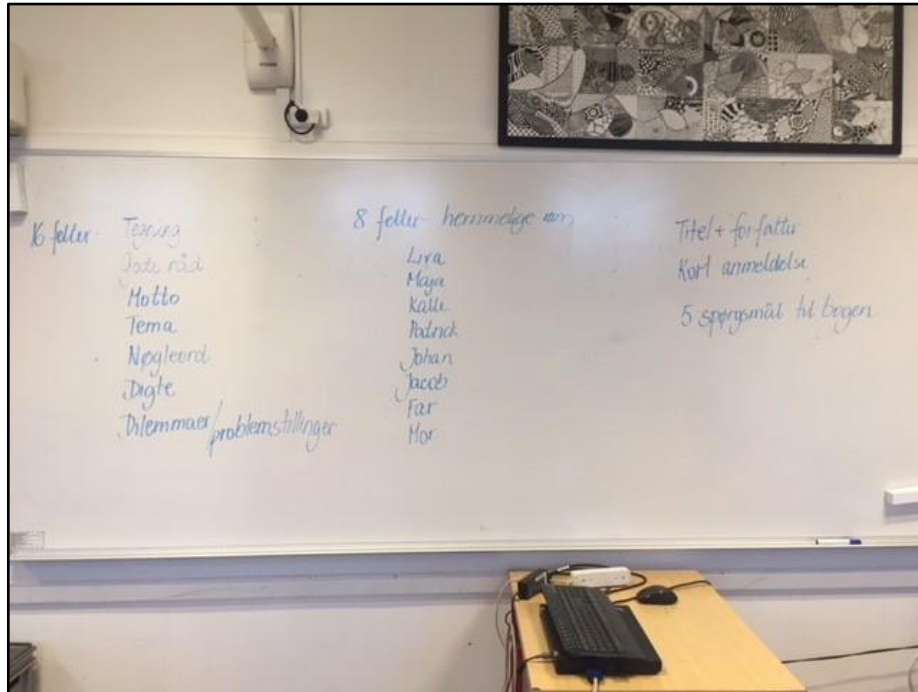 16 felter-
Tegning
Gode råd
Motto
Tema
Nøgleord
Digte
Dilemmaer/problemstillinger
8 felter- hemmelige rum
Liva
Maja
Kalle
Patrick
Johan
Jacob
Far
Mor
Titel + forfatter
Kort anmeldelse
5 spørgsmål til bogen